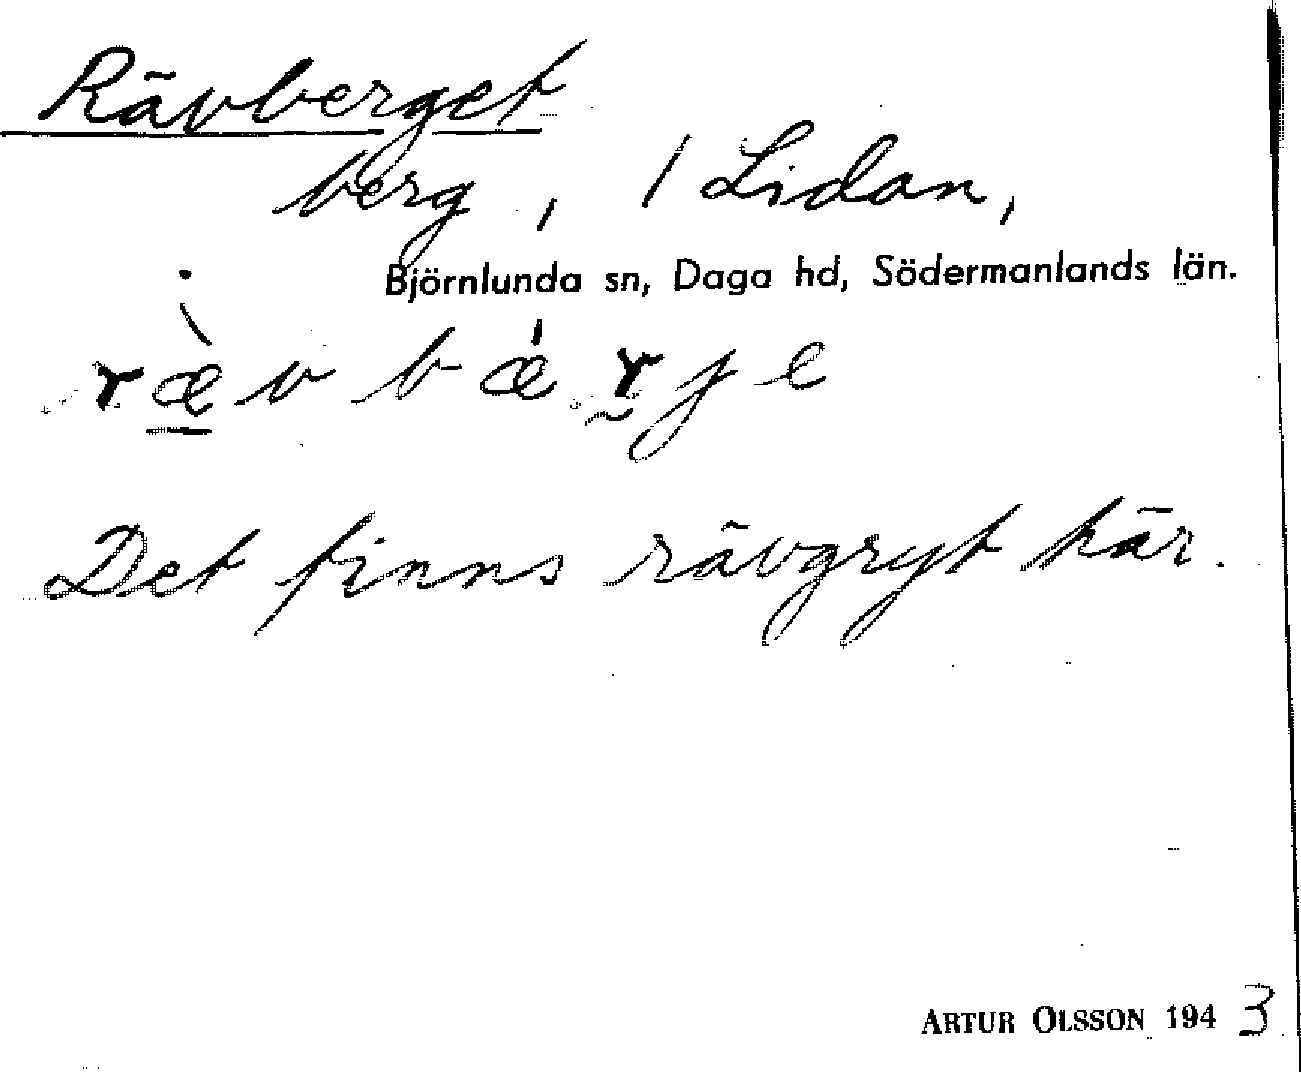 Rävberget
berg, / Lidan,
Björnlunda sn, Daga hd, Södermanlands län.
ræ̀vbǽrje
Det finns rävgryt här.
ARTUR OLSSON 1943